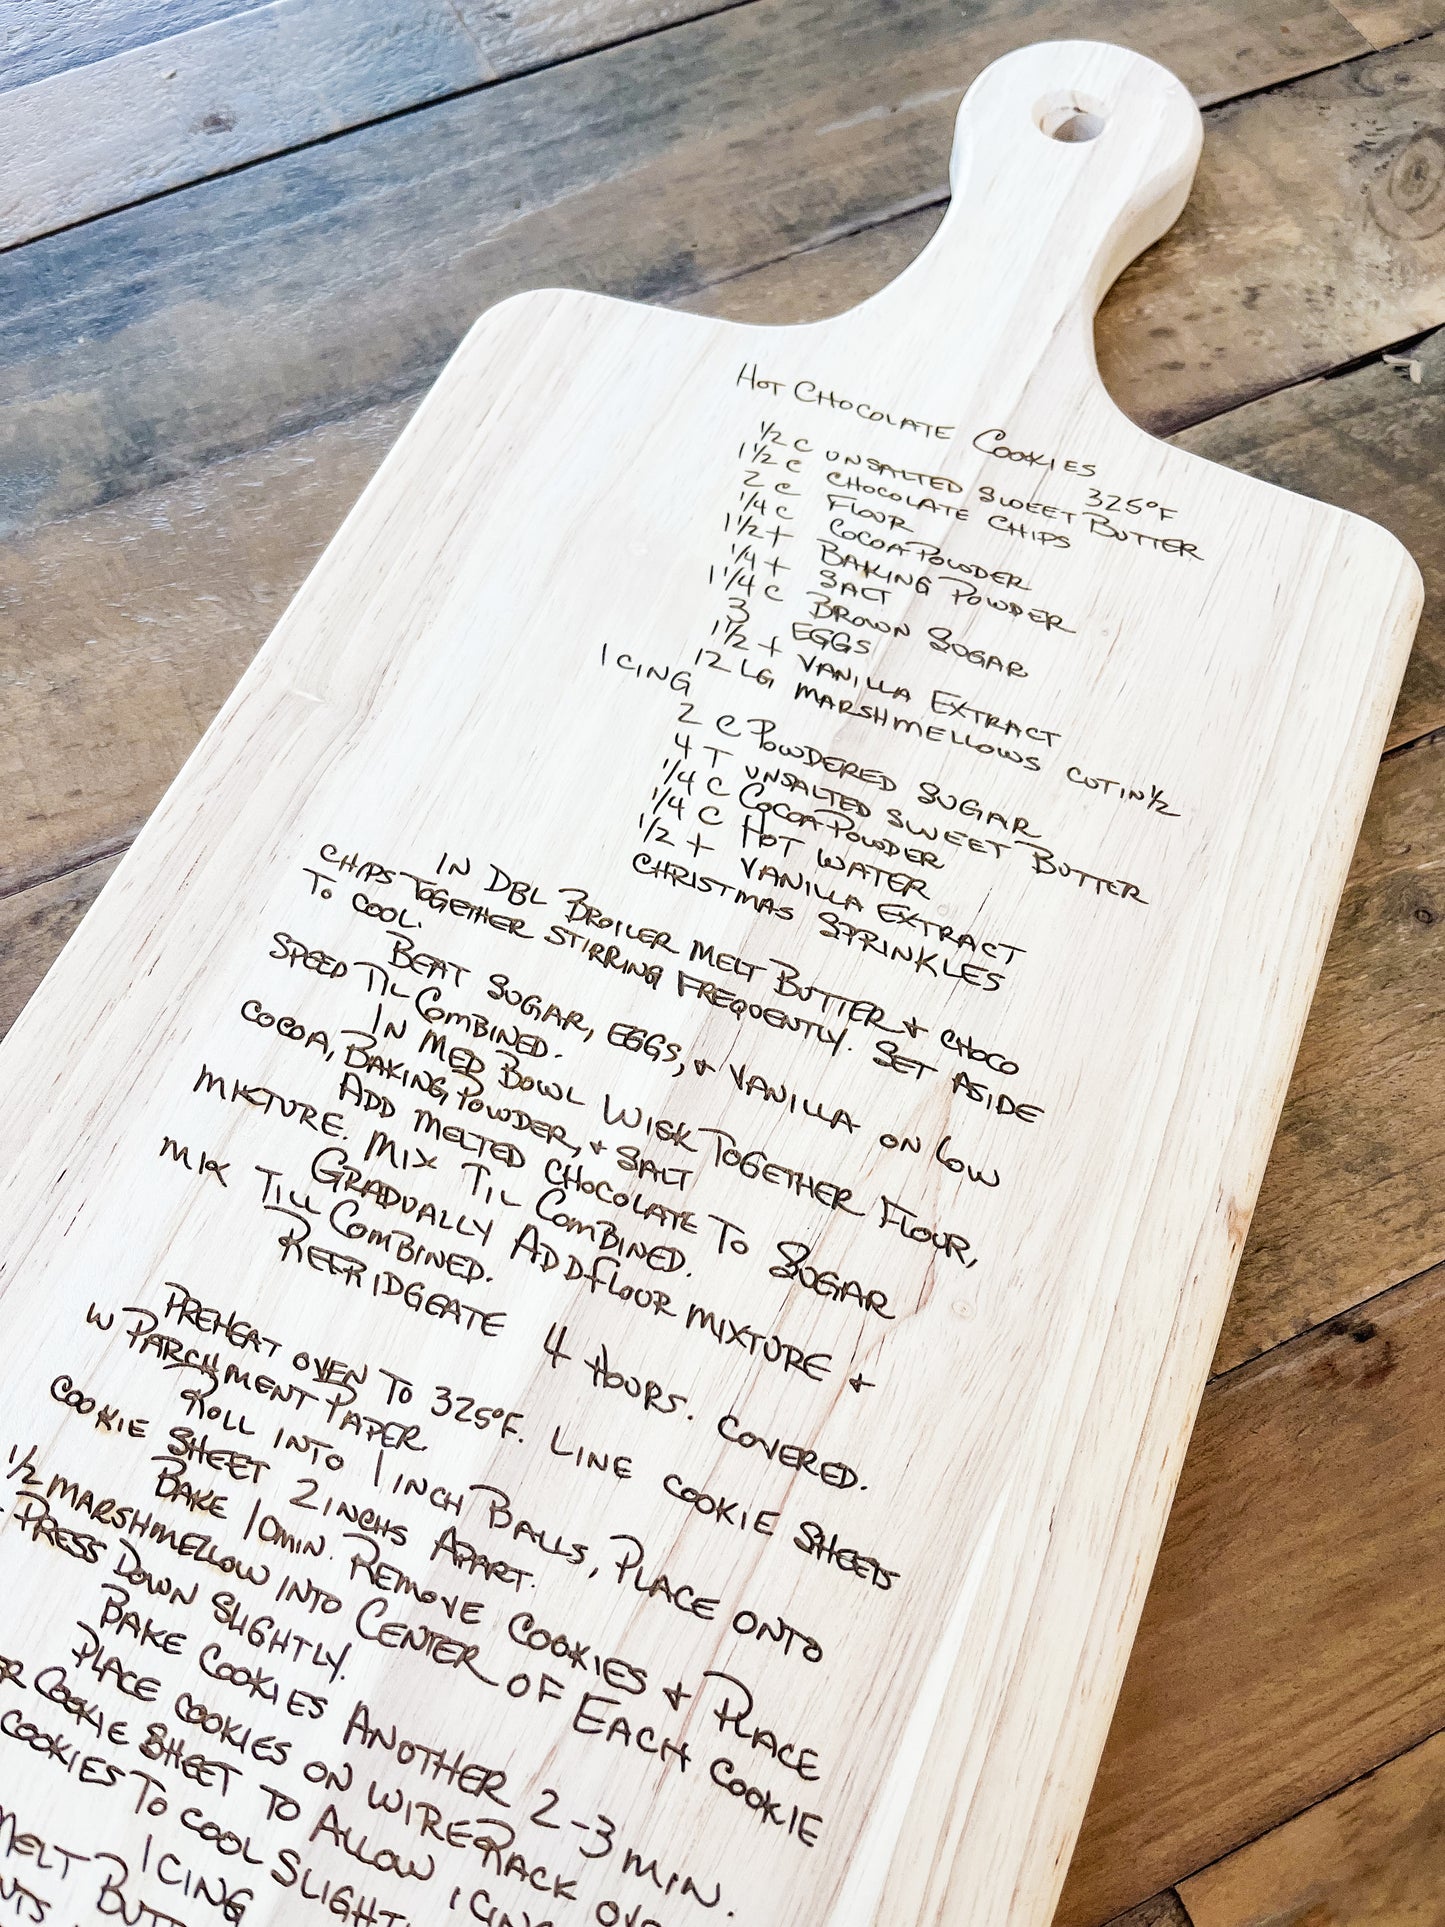 Hot Chocolate Cookies
325°F
1/2 C unsalted sweet Butter
1 1/2 C Chocolate Chips
2 C Flour
1/4 C Cocoa Powder
1 1/2 t Baking Powder
1/4 t Salt
1 1/4 C Brown Sugar
3 Eggs
1 1/2 t Vanilla Extract
12 LG Marshmellows cut in 1/2
Icing
2 C Powdered Sugar
4 T unsalted sweet Butter
1/4 C Cocoa Powder
1/4 C Hot water
1/2 t Vanilla Extract
Christmas Sprinkles
In Dbl Broiler melt Butter & choco
chips together stirring frequently. Set aside
to cool.
Beat sugar, eggs, & vanilla on low
speed til combined.
In med bowl wisk together flour,
cocoa, Baking Powder, & salt
Add melted chocolate to sugar
mixture. Mix til combined.
Gradually add flour mixture &
mix till combined.
Reefridgeate 4 hours. Covered.
Preheat oven to 325°F. Line cookie sheets
w parchment paper.
Roll into 1 inch balls, place onto
cookie sheet 2 inchs apart.
Bake 10 min. Remove cookies & place
1/2 marshmellow into center of each cookie
Press down slightly.
Bake cookies another 2-3 min.
Place cookies on wire rack
Cookie sheet to allow icing
cookies to cool
Icing
Melt